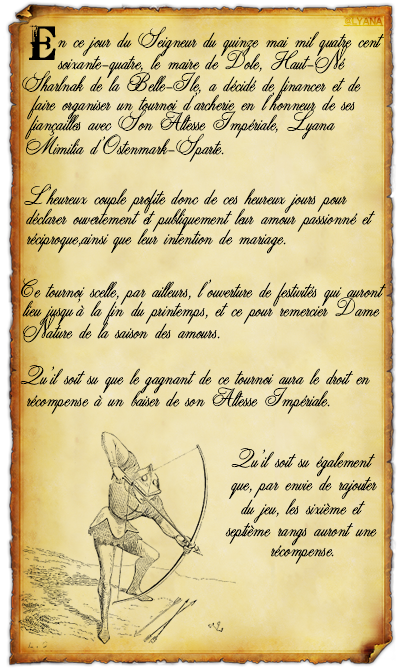 ©LYANA
En ce jour du Seigneur du quinze mai mil quatre cent
soixante-quatre, le maire de Dole, Haut-Né
Sharlnak de la Belle-Ile, a décidé de financer et de
faire organiser un tournoi d'archerie en l'honneur de ses
fiançailles avec Son Altesse Impériale, Lyana
Mimitia d'Ostenmark-Sparte.
L'heureux couple profite donc de ces heureux jours pour
déclarer ouvertement et publiquement leur amour passionné et
réciproque,ainsi que leur intention de mariage.
Ce tournoi scelle, par ailleurs, l'ouverture de festivités qui auront
lieu jusqu'à la fin du printemps, et ce pour remercier Dame
Nature de la saison des amours.
Qu'il soit su que le gagnant de ce tournoi aura le droit en
récompense à un baiser de son Altesse Impériale.
Qu'il soit su également
que, par envie de rajouter
du jeu, les sixième et
septième rangs auront une
récompense.